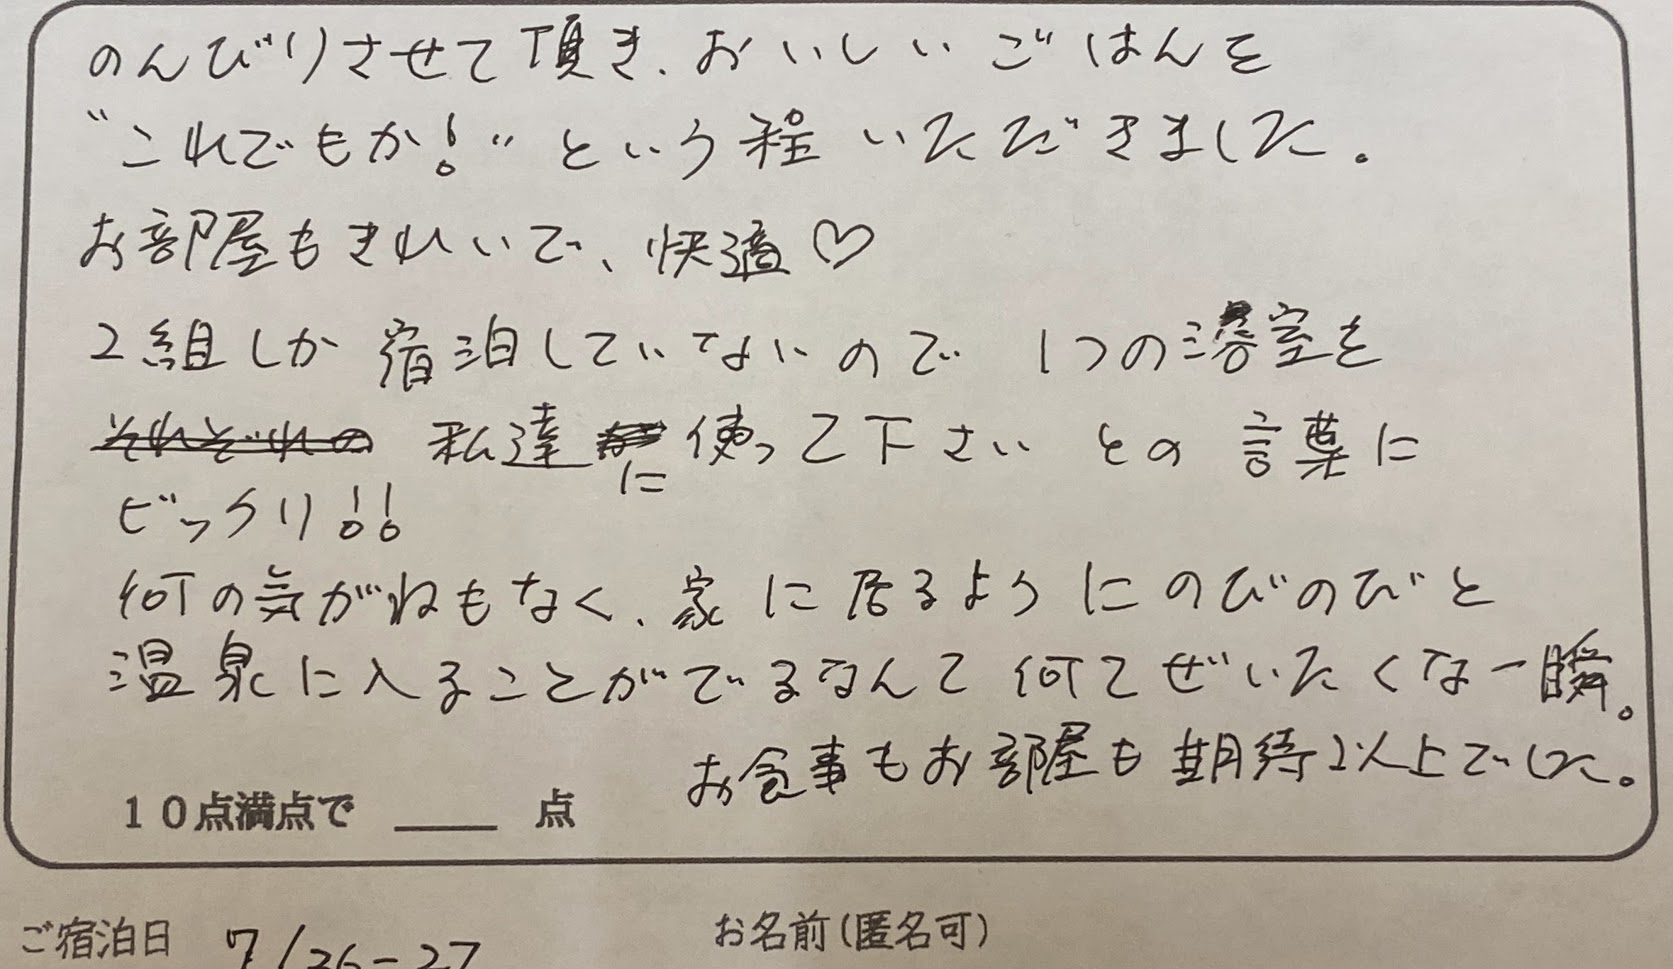 のんびりさせて頂き、おいしいごはんを
“これでもか!”という程いただきました。
お部屋もきれいで、快適♡
2組しか宿泊していないので 1つの浴室を
それぞれの 私達に使って下さい との言葉に
ビックリ!!
何の気がねもなく、家に居るようにのびのびと
温泉に入ることがでるなんて何てぜいたくな一瞬。
お食事もお部屋も期待以上でした。
10点満点で ____ 点
ご宿泊日 7/26-27
お名前(匿名可)